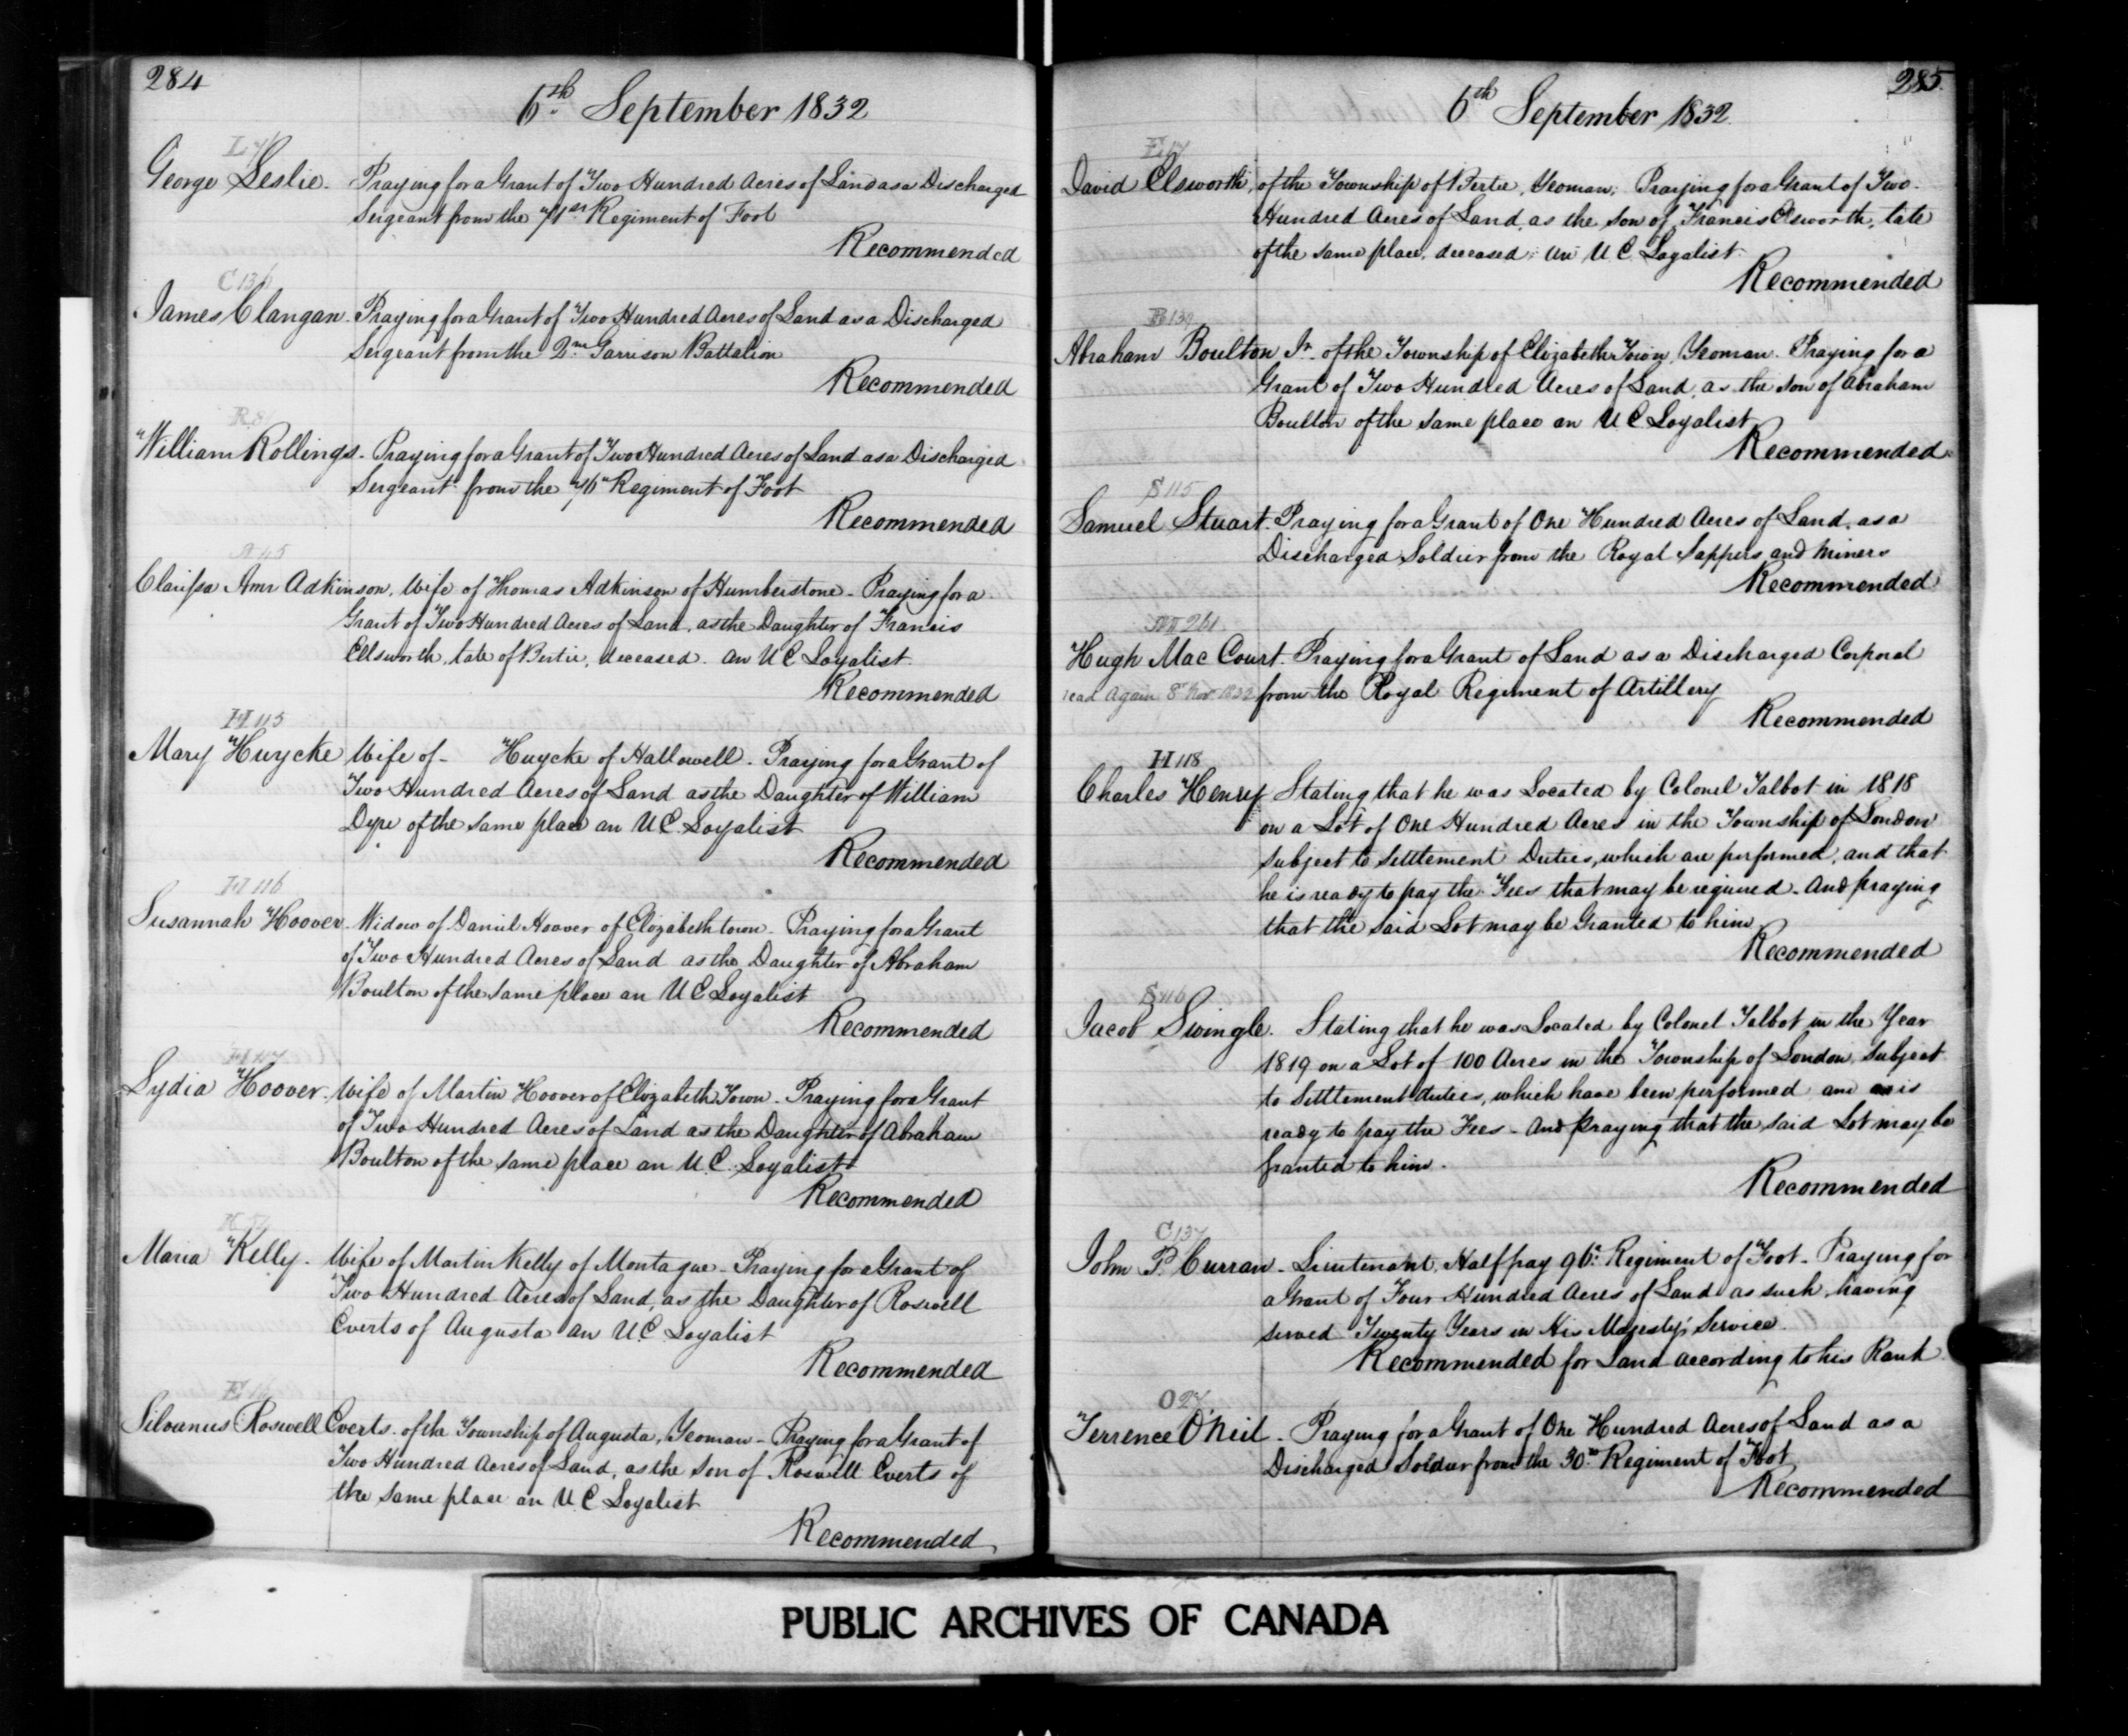 284
6th September 1832
L 7
George Leslie. Praying for a Grant of Two Hundred Acres of Land as a Discharged
Sergeant from the 71st Regiment of Foot
Recommended
C 136
James Clangan. Praying for a Grant of Two Hundred Acres of Land as a Discharged
Sergeant from the 2nd Garrison Battalion
Recommended
William Rollings. Praying for a Grant of Two Hundred Acres of Land as a Discharged
Sergeant from the 76th Regiment of Foot
Recommended
A 45
Clarissa Ann Adkinson, Wife of Thomas Adkinson of Humberstone - Praying for a
Grant of Two Hundred Acres of Land, as the Daughter of Francis
Ellsworth, late of Bertie, deceased. an U C Loyalist
Recommended
H 115
Mary Huycke Wife of - Huycke of Hallowell. Praying for a Grant of
Two Hundred Acres of Land as the Daughter of William
Dype of the same place an U.C. Loyalist
Recommended
H 116
Susannah Hoover. Widow of Daniel Hoover of Elizabethtown - Praying for a Grant
of Two Hundred Acres of Land as the Daughter of Abraham
Boulton of the same place an U C Loyalist
Recommended
H 117
Lydia Hoover. Wife of Martin Hoover of Elizabeth Town - Praying for a Grant
of Two Hundred Acres of Land as the Daughter of Abraham
Boulton of the same place an U.C. Loyalist
Recommended
Maria Kelly. Wife of Martin Kelly of Montague - Praying for a Grant of
Two Hundred Acres of Land, as the Daughter of Roswell
Everts of Augusta an U.C. Loyalist
Recommended
E 16
Silvanus Roswell Everts. of the Township of Augusta, Yeoman - Praying for a Grant of
Two Hundred Acres of Land, as the Son of Roswell Everts of
the same place an U.C Loyalist
Recommended
285
6th September 1832
E 17
David Elsworth, of the Township of Bertie, Yeoman, Praying for a Grant of Two
Hundred Acres of Land, as the Son of Francis Elsworth, late
of the same place, deceased, an U C Loyalist
Recommended
B 139
Abraham Boulton Jr. of the Township of Elizabeth Town, Yeoman. Praying for a
Grant of Two Hundred Acres of Land, as the son of Abraham
Boulton of the same place an U C Loyalist
Recommended
S 115
Samuel Stuart. Praying for a Grant of One Hundred Acres of Land, as a
Discharged Soldier from the Royal Sappers and Miners
Recommended
M 261
Hugh Mac Court. Praying for a Grant of Land as a Discharged Corporal
read again 8th Nov 1832 from the Royal Regiment of Artillery
Recommended
H 118
Charles Henry Stating that he was Located by Colonel Talbot in 1818
on a Lot of One Hundred Acres in the Township of London
subject to Settlement Duties, which are performed, and that
he is ready to pay the Fees that may be required - And praying
that the said Lot may be Granted to him
Recommended
S 116
Jacob Swingle. Stating that he was Located by Colonel Talbot in the Year
1819 on a Lot of 100 Acres in the Township of London, Subject
to Settlement duties, which have been performed and is
ready to pay the Fees - And praying that the said Lot may be
Granted to him.
Recommended
C 137
John P. Curran - Lieutenant, Half pay 96th Regiment of Foot - Praying for
a Grant of Four Hundred Acres of Land as such, having
served Twenty Years in His Majesty's Service.
Recommended for Land according to his Rank
O 27
Terrence O'Neil - Praying for a Grant of One Hundred Acres of Land as a
Discharged Soldier from the 30th Regiment of Foot
Recommended
PUBLIC ARCHIVES OF CANADA